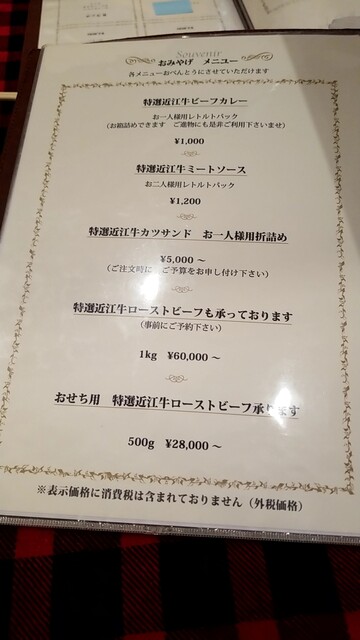 Souvenir
おみやげ メニュー
各メニューおべんとうにさせていただけます
特選近江牛ビーフカレー
お一人様用レトルトパック
(お箱詰めできます ご進物にも是非ご利用下さいませ)
¥1,000
特選近江牛ミートソース
お二人様用レトルトパック
¥1,200
特選近江牛カツサンド お一人様用折詰め
¥5,000 ～
(ご注文時に ご予算をお申し付け下さい)
特選近江牛ローストビーフも承っております
(事前にご予約下さい)
1kg ¥60,000 ～
おせち用 特選近江牛ローストビーフ承ります
500g ¥28,000 ～
※表示価格に消費税は含まれておりません (外税価格)